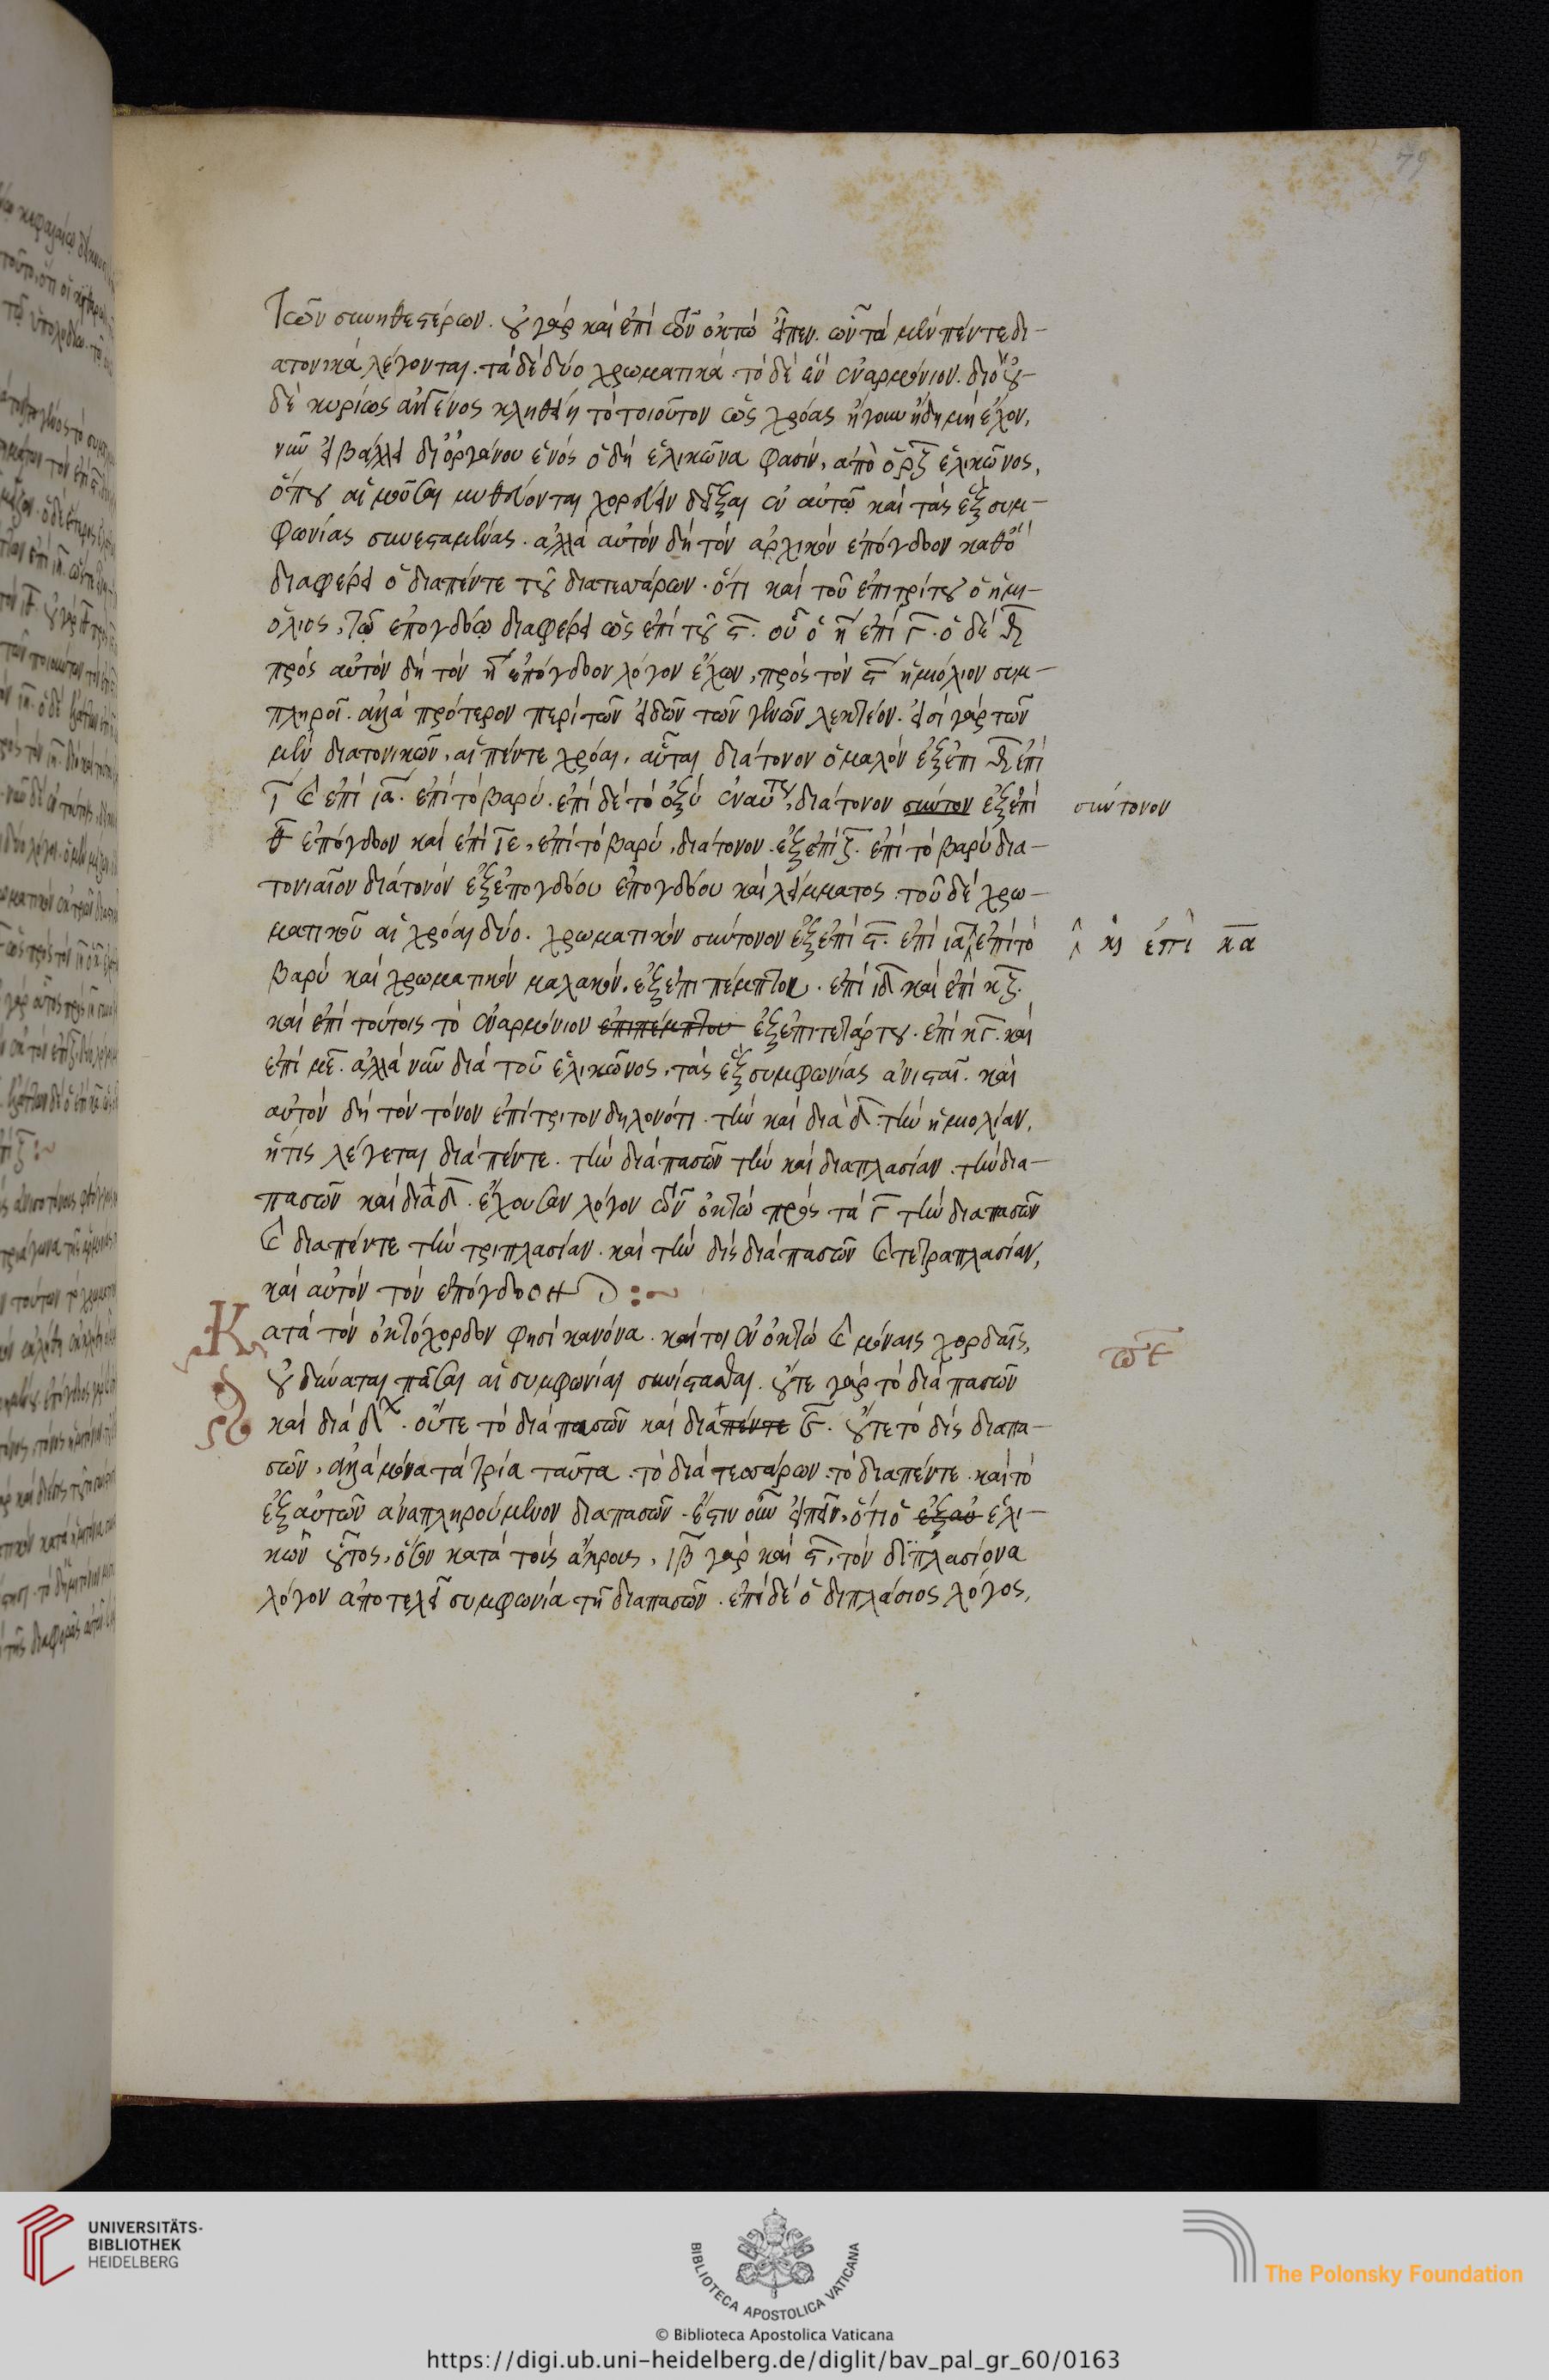 79
τῶν συνηθεστέρων. οὐ γάρ καὶ ἐπὶ τῶν ὀκτώ εἶπεν. ὧν τὰ μὲν πέντε δι-
ατονικά λέγονται. τὰ δὲ δύο χρωματικά. τὸ δὲ ἓν ἐναρμόνιον. διὸ οὐ-
δὲ κυρίως ἂν γένος κληθείη τὸ τοιοῦτον ὡς χρόας ἤγουν εἴδη μὴ ἔχον.
νῦν εἰσβάλλει δι' ὀργάνου ἑνός ὃ δὴ ἑλικῶνα φασίν, ἀπὸ ὄρους ἑλικῶνος,
ὅπου αἱ μοῦσαι μυθεύονται χορεύειν δεῖξαι ἐν αὐτῷ καὶ τὰς ἓξ συμ-
φωνίας συνισταμένας. ἀλλὰ αὐτὸν δὴ τὸν ἀρχικὸν ἐπόγδοον καθὸ
διαφέρει ὁ διαπέντε τοῦ διατεσσάρων. ὅτι καὶ τοῦ ἐπιτρίτου ὁ ἡμι-
όλιος, τῷ ἐπογδόῳ διαφέρει ὡς ἐπὶ τοῦ ϛ. οὗ ὁ η ἐπὶ γ. ὁ δὲ θ
πρὸς αὐτὸν δὴ τὸν η ἐπόγδοον λόγον ἔχων, πρὸς τὸν ϛ ἡμιόλιον συμ-
πληροῖ. ἀλλὰ πρότερον περὶ τῶν εἰδῶν τῶν γενῶν λεκτέον. εἰσὶ γάρ τῶν
μὲν διατονικῶν, αἱ πέντε χρόαι, αὗται διάτονον ὁμαλόν ἐξ ἐπι θ ἐπὶ
ι καὶ ἐπὶ ια. ἐπὶ τὸ βαρύ. ἐπὶ δὲ τὸ ὀξύ ἐναντίως, διάτονον σύντον ἐξ ἐπὶ σύντονον
θ ἐπόγδοον καὶ ἐπὶ ιε, ἐπὶ τὸ βαρύ, διάτονον. ἐξ ἐπὶ ζ. ἐπὶ τὸ βαρύ δια-
τονιαῖον διάτονόν ἐξ ἐπογδόου ἐπογδόου καὶ λείμματος. τοῦ δὲ χρω-
ματικοῦ αἱ χρόαι δύο. χρωματικόν σύντονον ἐξ ἐπὶ ϛ. ἐπὶ ια ἐπὶ τὸ καὶ ἐπὶ κα
βαρύ καὶ χρωματικόν μαλακόν, ἐξ ἐπιπέμπτου. ἐπὶ ιδ καὶ ἐπὶ κζ.
καὶ ἐπὶ τούτοις τὸ ἐναρμόνιον ἐπιπέμπτου ἐξ ἐπιτετάρτου. ἐπὶ κγ. καὶ
ἐπὶ με. ἀλλὰ νῦν διὰ τοῦ ἑλικῶνος, τὰς ἓξ συμφωνίας ἀνιστᾶ. καὶ
αὐτὸν δὴ τὸν τόνον ἐπίτριτον δηλονότι. τὴν καὶ διὰ δ. τὴν ἡμιολίαν,
ἥτις λέγεται διὰ πέντε. τὴν διὰ πασῶν τὴν καὶ διπλασίαν. τὴν δια-
πασῶν καὶ διὰ δ. ἔχουσαν λόγον τῶν ὀκτώ πρὸς τὰ γ τὴν διαπασῶν
καὶ διαπέντε τὴν τριπλασίαν. καὶ τὴν δὶς διὰ πασῶν καὶ τετραπλασίαν,
καὶ αὐτὸν τὸν ἐπόγδοον :~
Κατὰ τὸν ὀκτάχορδον φησί κανόνα. καίτοι ἐν ὀκτώ καὶ μόναις χορδαῖς,
οὐ δύναται πᾶσαι αἱ συμφωνίαι συνίστασθαι. οὔτε γάρ τὸ διὰ πασῶν
καὶ διὰ δ. οὔτε τὸ διὰ πασῶν καὶ διὰ πέντε ε. οὔτε τὸ δὶς διαπα-
σῶν, ἀλλὰ μόνα τὰ τρία ταῦτα. τὸ διὰ τεσσάρων. τὸ διαπέντε. καὶ τὸ
ἐξ αὐτῶν ἀναπληρούμενον διαπασῶν. ἔστιν οὖν εἰπεῖν, ὅτι ὁ ἐξ αὐ ἑλι-
κών οὗτος, ὅσον κατὰ τοὺς ἄκρους, ιβ γάρ καὶ ϛ, τὸν διπλασίονα
λόγον ἀποτελεῖ συμφωνία τῇ διαπασῶν. ἐπεὶ δὲ ὁ διπλάσιος λόγος,
UNIVERSITÄTS-
BIBLIOTHEK
HEIDELBERG
BIBLIOTECA APOSTOLICA VATICANA
The Polonsky Foundation
© Biblioteca Apostolica Vaticana
https://digi.ub.uni-heidelberg.de/diglit/bav_pal_gr_60/0163